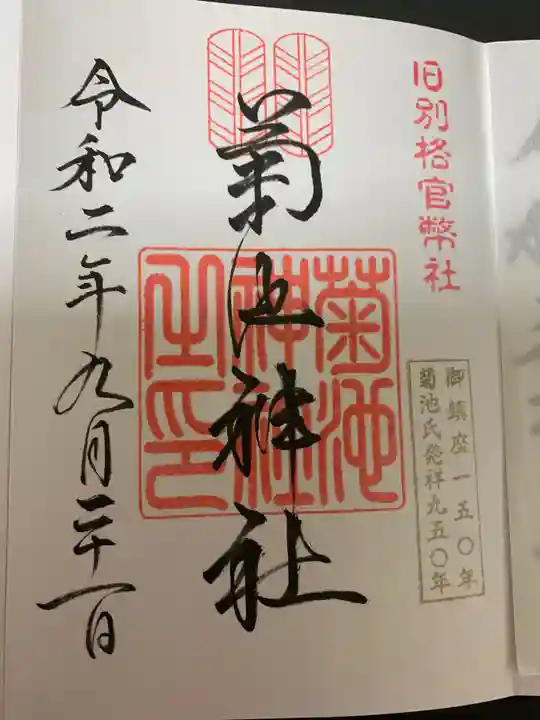 旧別格官幣社
御鎮座一五〇年
菊池氏発祥九五〇年
菊池神社
菊池神社之印
令和二年九月二十一日